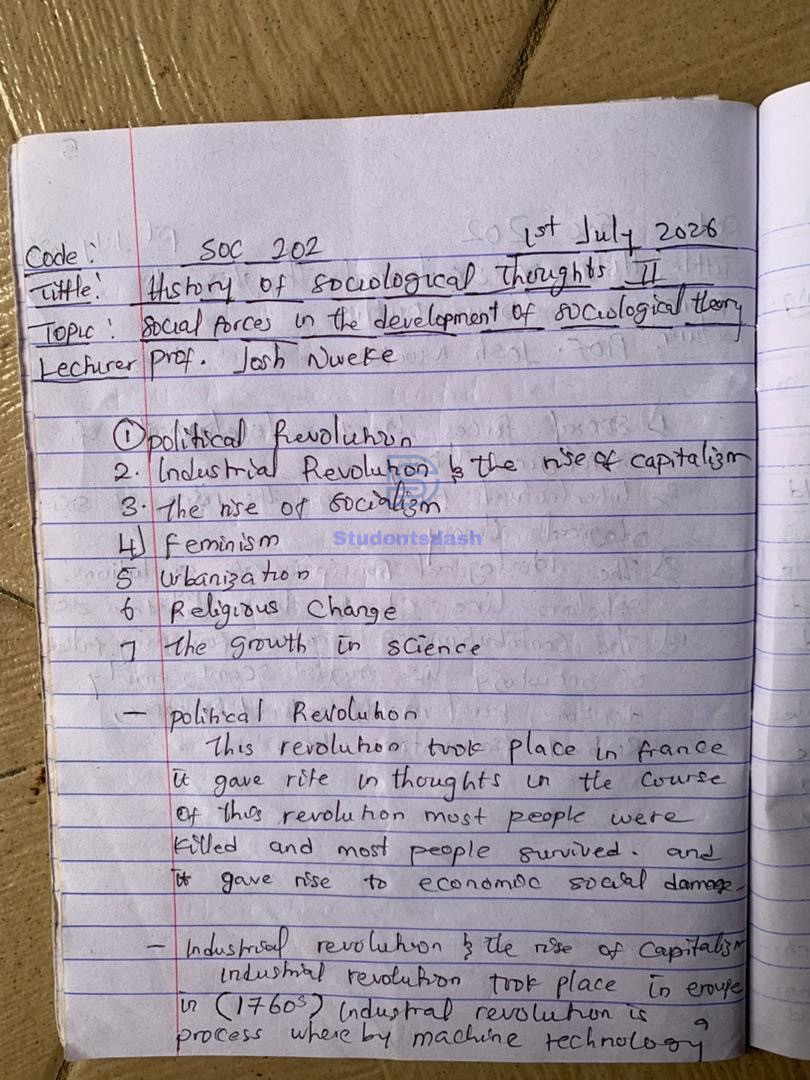 Code: SOC 202 1st July 2026
Tittle: History of sociological thoughts II
Topic: Social forces in the development of sociological theory
Lecturer Prof. Josh Nweke
① political Revolution
2. Industrial Revolution & the rise of capitalism
3. The rise of socialism
4) feminism
Studentsdash
5 urbanization
6 Religious Change
7 the growth in science
— political Revolution
This revolution took place in france
it gave rite in thoughts in the course
of this revolution most people were
killed and most people survived. and
it gave rise to economic social damage-
— Industrial revolution & the rise of Capitalism
industrial revolution took place in eroupe
in (1760s) industral revolution is
process where by machine technology